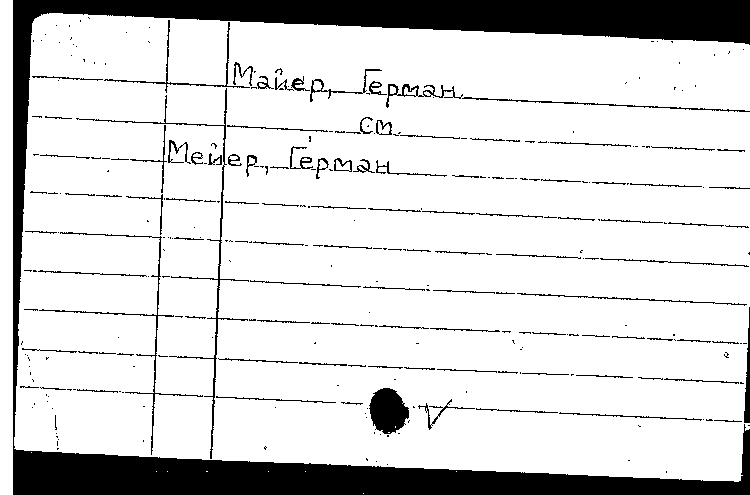 Майер, Герман.
см.
Мейер, Герман